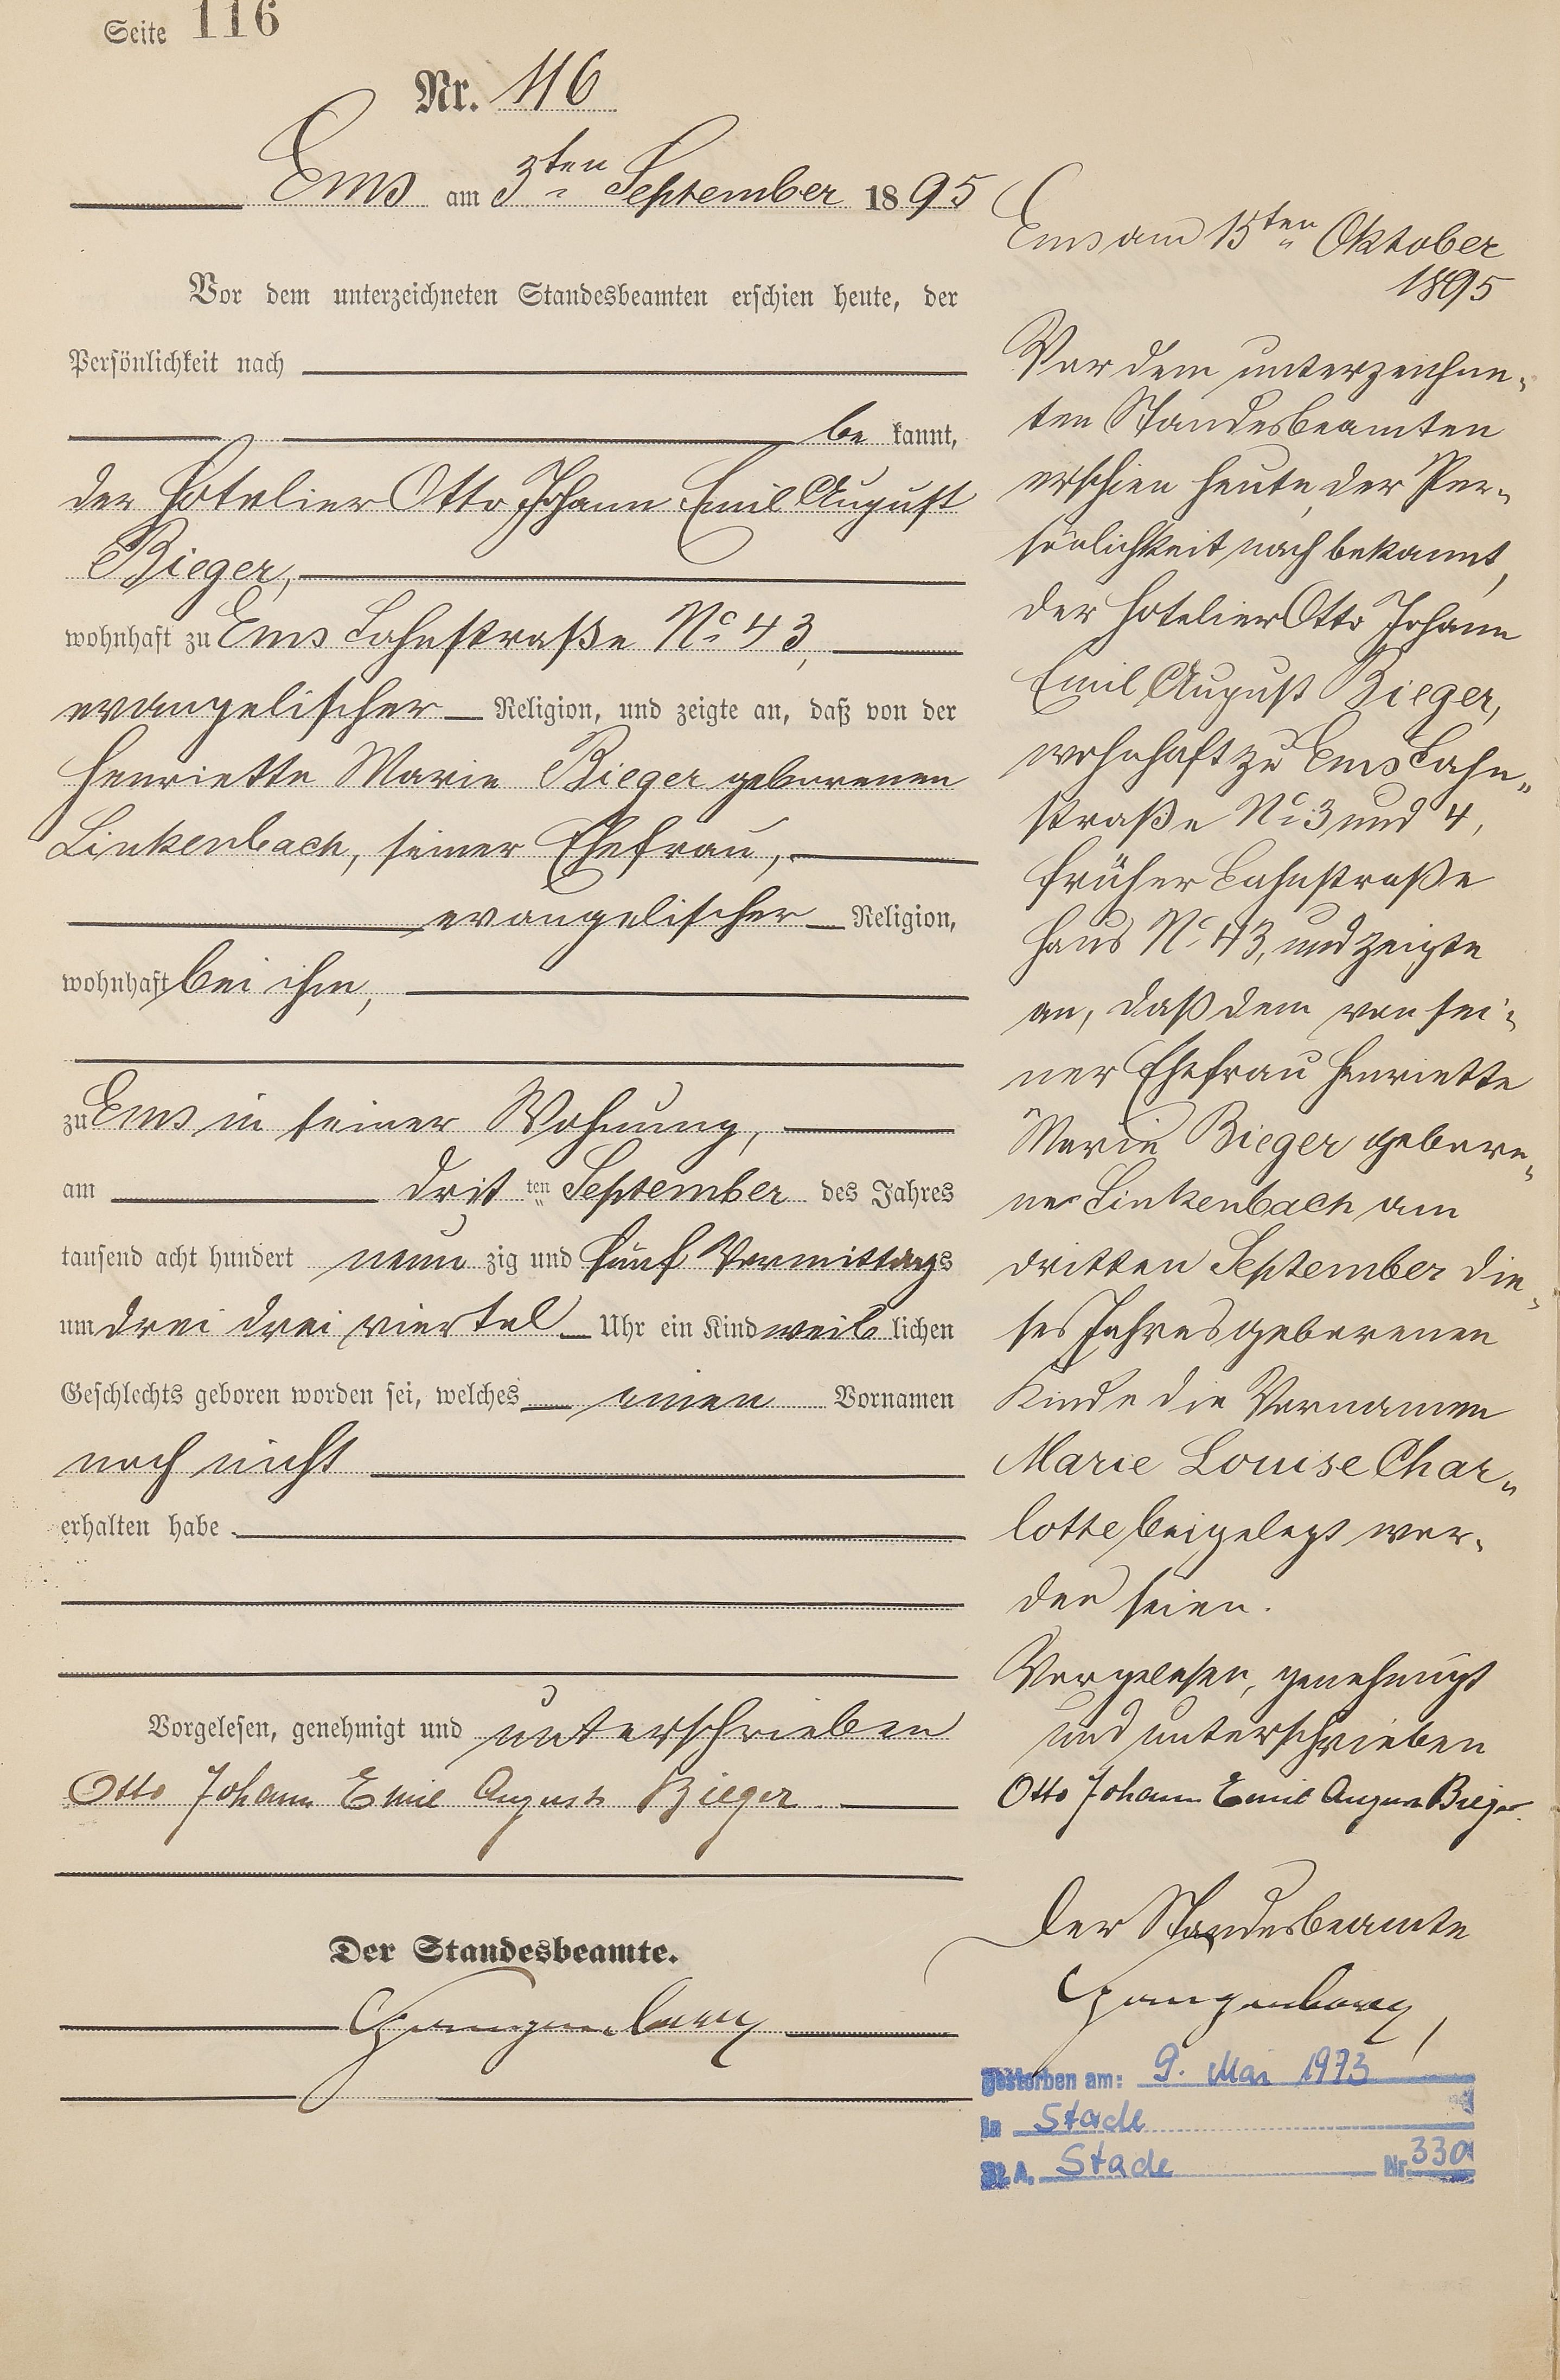 Seite 116
Nr. 116
Ems am 3ten September 1895
Vor dem unterzeichneten Standesbeamten erschien heute, der
Persönlichkeit nach
be kannt,
der Hotelier Otto Johann Emil August
Bieger,
wohnhaft zu Ems Lahnstraße No 43,
evangelischer Religion, und zeigte an, daß von der
Henriette Marie Bieger geborenen
Linkenbach, seiner Ehefrau,
evangelischer Religion,
wohnhaft bei ihm,
zu Ems in seiner Wohnung,
am drit ten September des Jahres
tausend acht hundert neun zig und fünf Vormittags
um drei drei viertel Uhr ein Kind weib lichen
Geschlechts geboren worden sei, welches einen Vornamen
noch nicht
erhalten habe.
Vorgelesen, genehmigt und unterschrieben
Otto Johann Emil August Bieger
Der Standesbeamte.
Ems am 15ten Oktober
1895
Vor dem unterzeichne-
ten Standesbeamten
erschien heute, der Per-
sönlichkeit nach bekannt,
der Hotelier Otto Johann
Emil August Bieger,
wohnhaft zu Ems Lahn-
straße No 3 und 4,
früher Lahnstraße
Haus No 43, und zeigte
an, daß dem von sei-
ner Ehefrau Henriette
Marie Bieger gebore-
ne Linkenbach am
dritten September die-
ses Jahres geborenen
Kinde die Vornamen
Marie Louise Char-
lotte beigelegt wor-
den seien.
Vorgelesen, genehmigt
und unterschrieben
Otto Johann Emil August Bieger.
Der Standesbeamte
gestorben am: 9. Mai 1973
in Stade
St. A. Stade Nr. 330